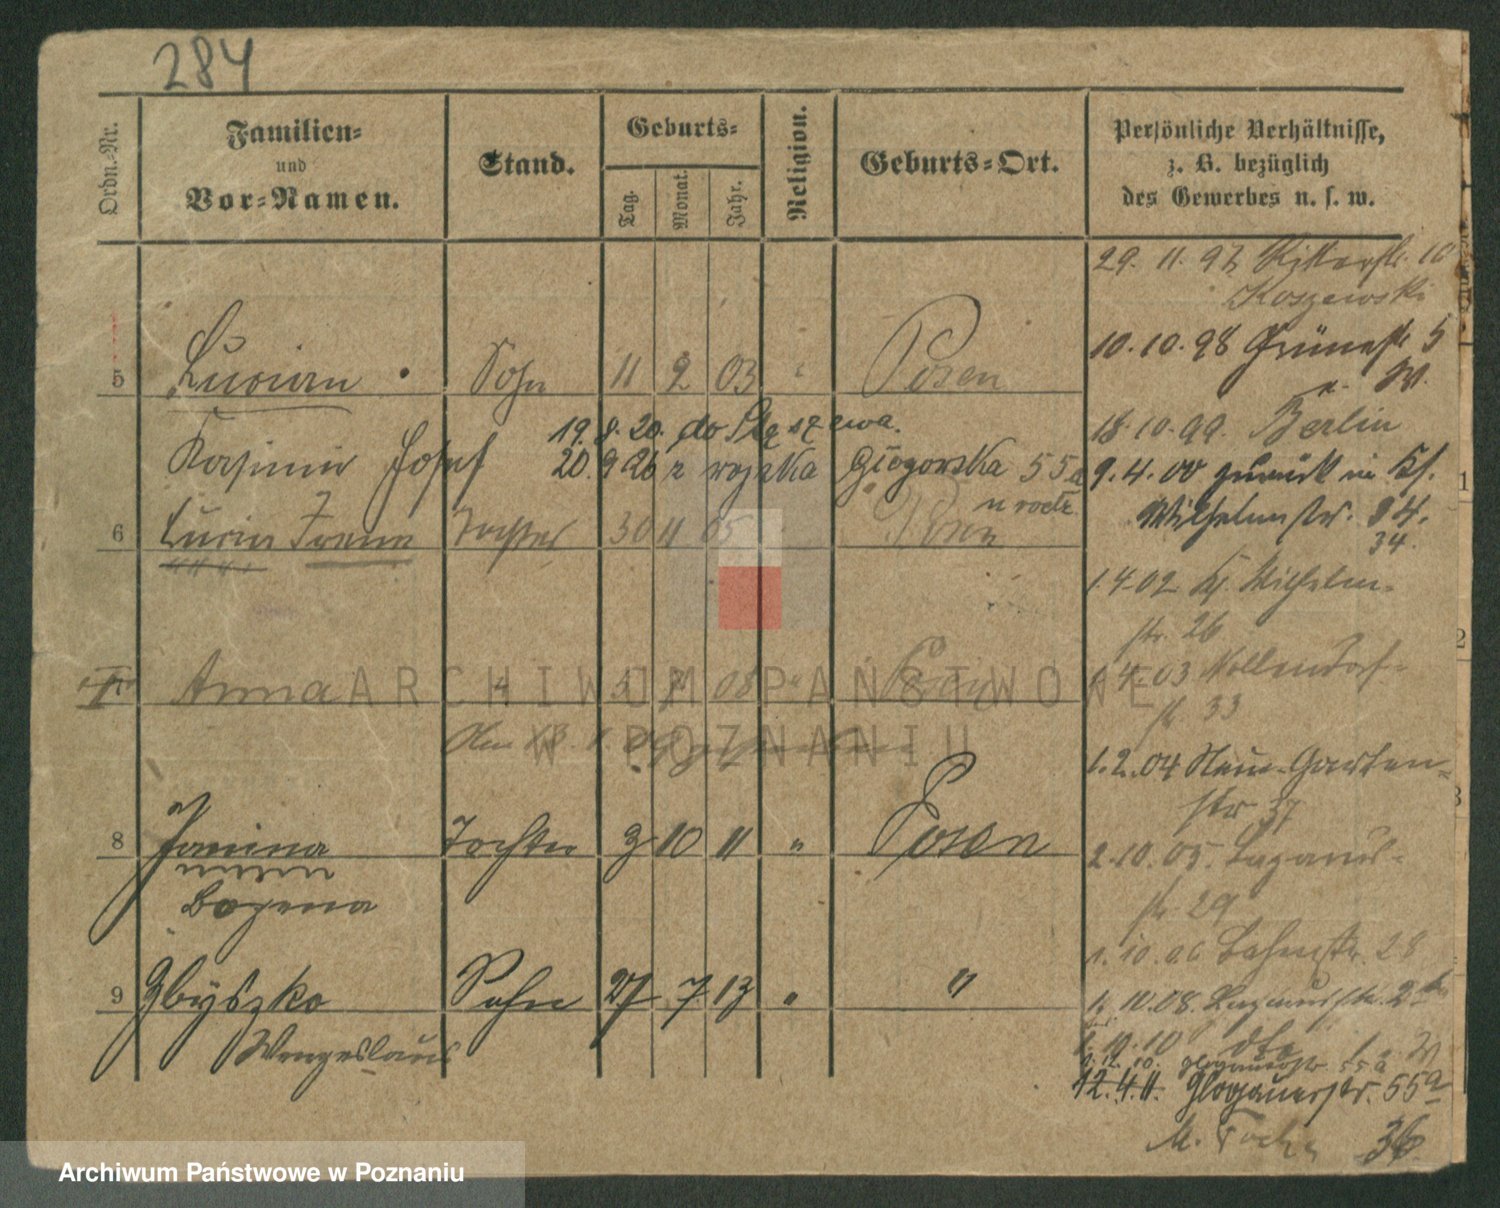 284
Ordn.-Nr.
Familien-
und
Vor-Namen.
Stand.
Geburts-
Tag.
Monat.
Jahr.
Religion.
Geburts-Ort.
Persönliche Verhältnisse,
z. B. bezüglich
des Gewerbes u. s. w.
29. 11. 97 Ritterstr. 10
Koszewski
10.10.98 Grünestr 5
5 Lucian Sohn 11 2 03 " Posen
18.10.99. Berlin
19.8.20. do Stęszewa.
Kasimir Josef 20.9 26 z wojska Głogowska 55a
9.4.00 zurück in Kl.
u rodz.
Wilhelmstr. 34.
34.
6 Lucia Irena Tochter 30 11 05 Posen
1.4.02 Kl. Wilhelm-
str. 26
7 Anna 08 " Posen
1.4.03 Nollendorf-
str. 33
1.2.04 Neue Garten-
str 37
8 Janina Tochter 3 10 11 " Posen
2.10.05. Lazarus-
str 29
Bozena
1.10.06 Bahnstr. 28
9 Zbyszko Sohn 27 7 13 " "
1.10.08. Lazarusstr.
Wenzeslaus
1.10.10 dto
Glogauerstr. 55a
12.4.11. Glogauerstr. 55a
M. 36
ARCHIWUM PAŃSTWOWE
W POZNANIU
Archiwum Państwowe w Poznaniu